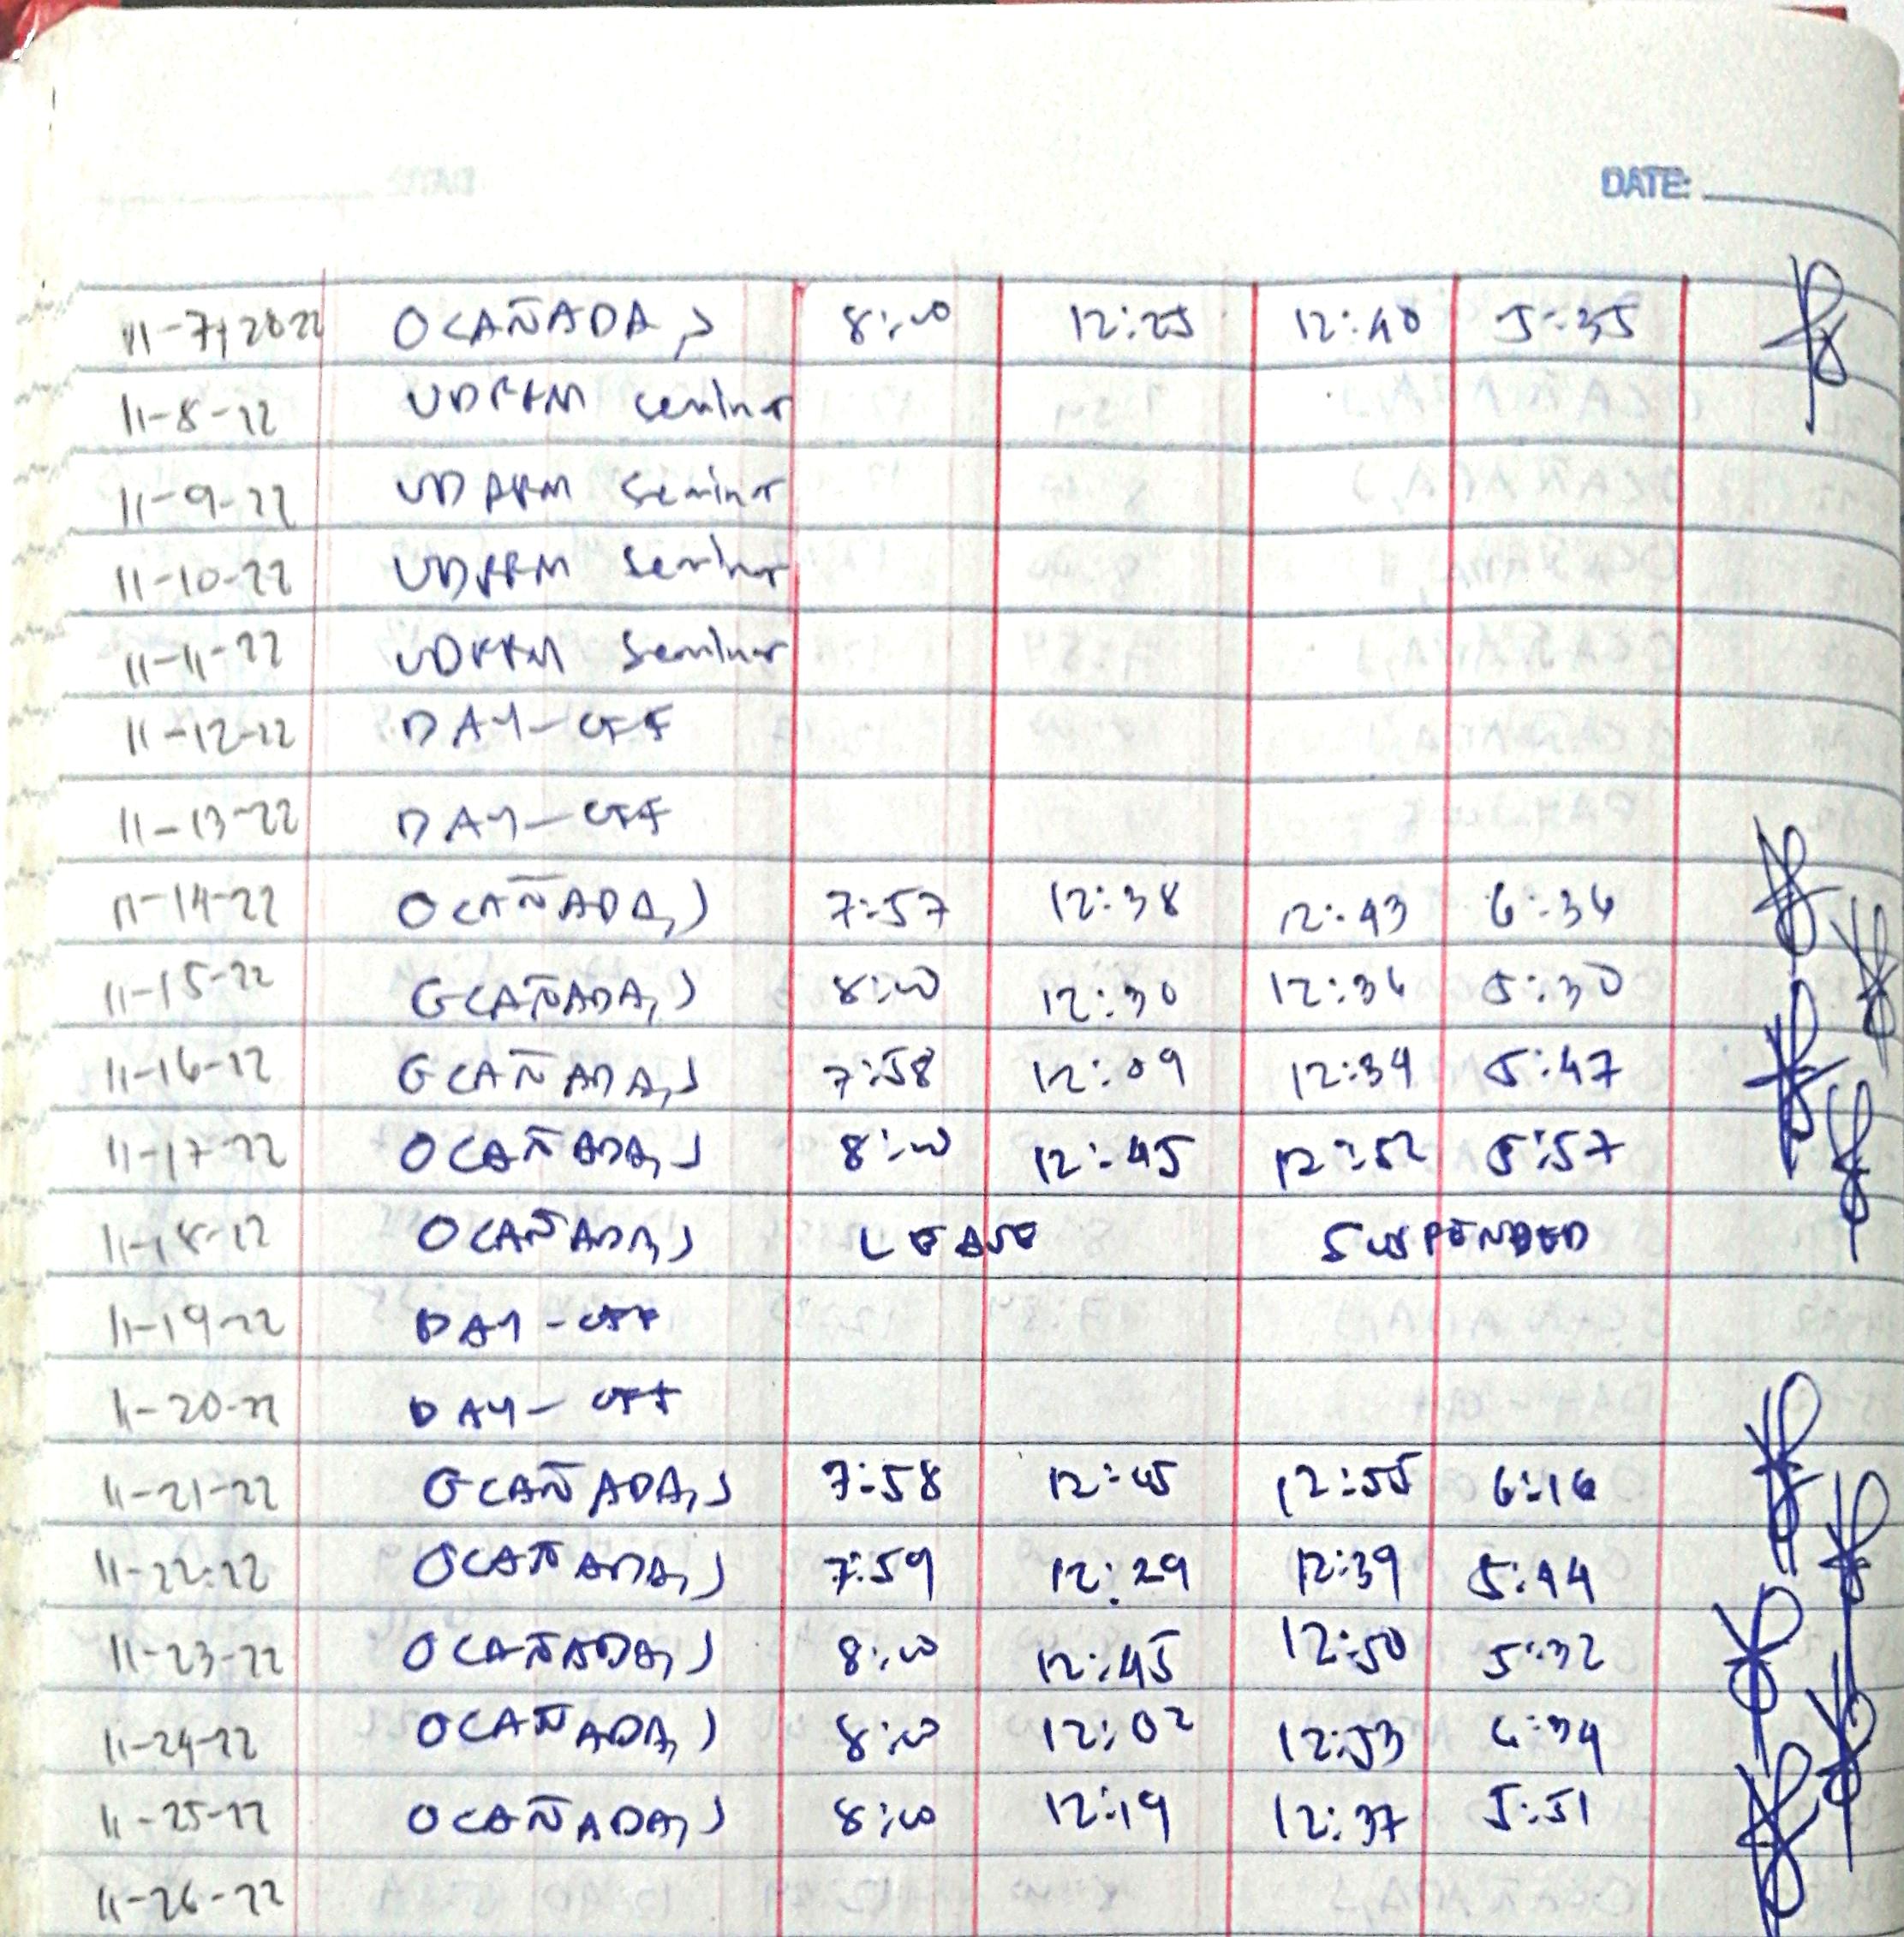 DATE:
11-7-2022 OCAÑADA, J 8:00 12:25 12:40 5:35
11-8-22 seminar
11-9-22 seminar
11-10-22 seminar
11-11-22 seminar
11-12-22 DAY-OFF
11-13-22 DAY-OFF
11-14-22 OCAÑADA, J 7:57 12:38 12:43 6:36
11-15-22 OCAÑADA, J 8:00 12:30 12:36 5:30
11-16-22 OCAÑADA, J 7:58 12:09 12:39 5:47
11-17-22 OCAÑADA, J 8:00 12:45 12:52 5:57
11-18-22 OCAÑADA, J LEAVE SUSPENDED
11-19-22 DAY-OFF
11-20-22 DAY-OFF
11-21-22 OCAÑADA, J 7:58 12:45 12:55 6:16
11-22-22 OCAÑADA, J 7:59 12:29 12:39 5:44
11-23-22 OCAÑADA, J 8:00 12:45 12:50 5:32
11-24-22 OCAÑADA, J 8:00 12:02 12:53 6:34
11-25-22 OCAÑADA, J 8:00 12:19 12:37 5:51
11-26-22